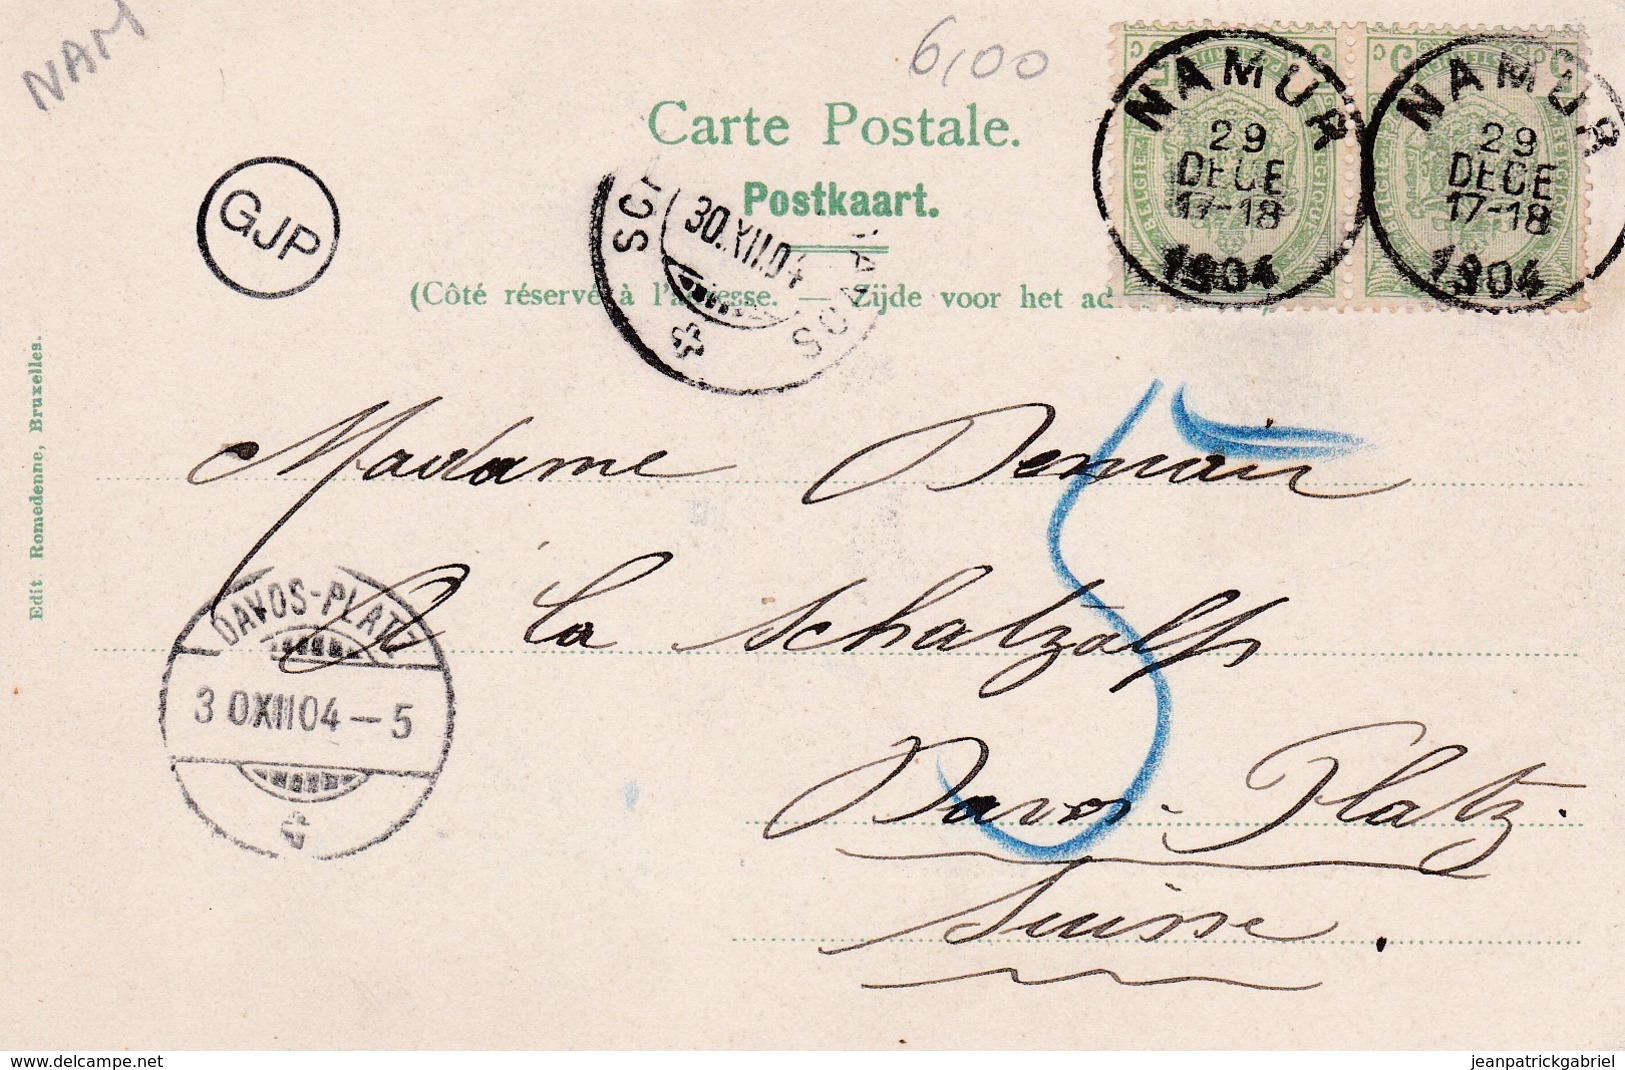 NAM
6,00
Carte Postale.
Postkaart.
(Côté réservé à l'a esse. — Zijde voor het ad
GJP
NAMUR
29
DECE
17-18
1904
NAMUR
29
DECE
17-18
1904
30.XII.04
DAVOS
Edit Romedenne, Bruxelles.
Madame Demain
A la Schatzalp
Davos-Platz.
Suisse.
5
DAVOS-PLATZ
30XII04-5
delcampe.net
jeanpatrickgabriel